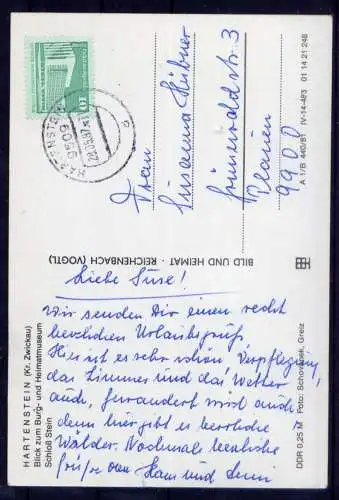 HARTENSTEIN (Kr. Zwickau)
Blick zum Burg- und Heimatmuseum
Schloß Stein
Liebe Suse!
Wir senden Dir einen recht
herzlichen Urlaubsgruß.
Hier ist es sehr schön. Verpflegung,
das Zimmer und das Wetter
auch. Gewandert wird auch
denn hier gibt es herrliche
Wälder. Nochmals herzliche
Grüße von Hans und
BILD UND HEIMAT · REICHENBACH (VOGTL)
HARTENSTEIN
9509
10
Frau
Susanna Hübner
straße 3
Plauen
9900
A 1/B 440/81 IV-14-483 01 14 21 248
DDR 0,25 M Foto: Schovanek, Greiz